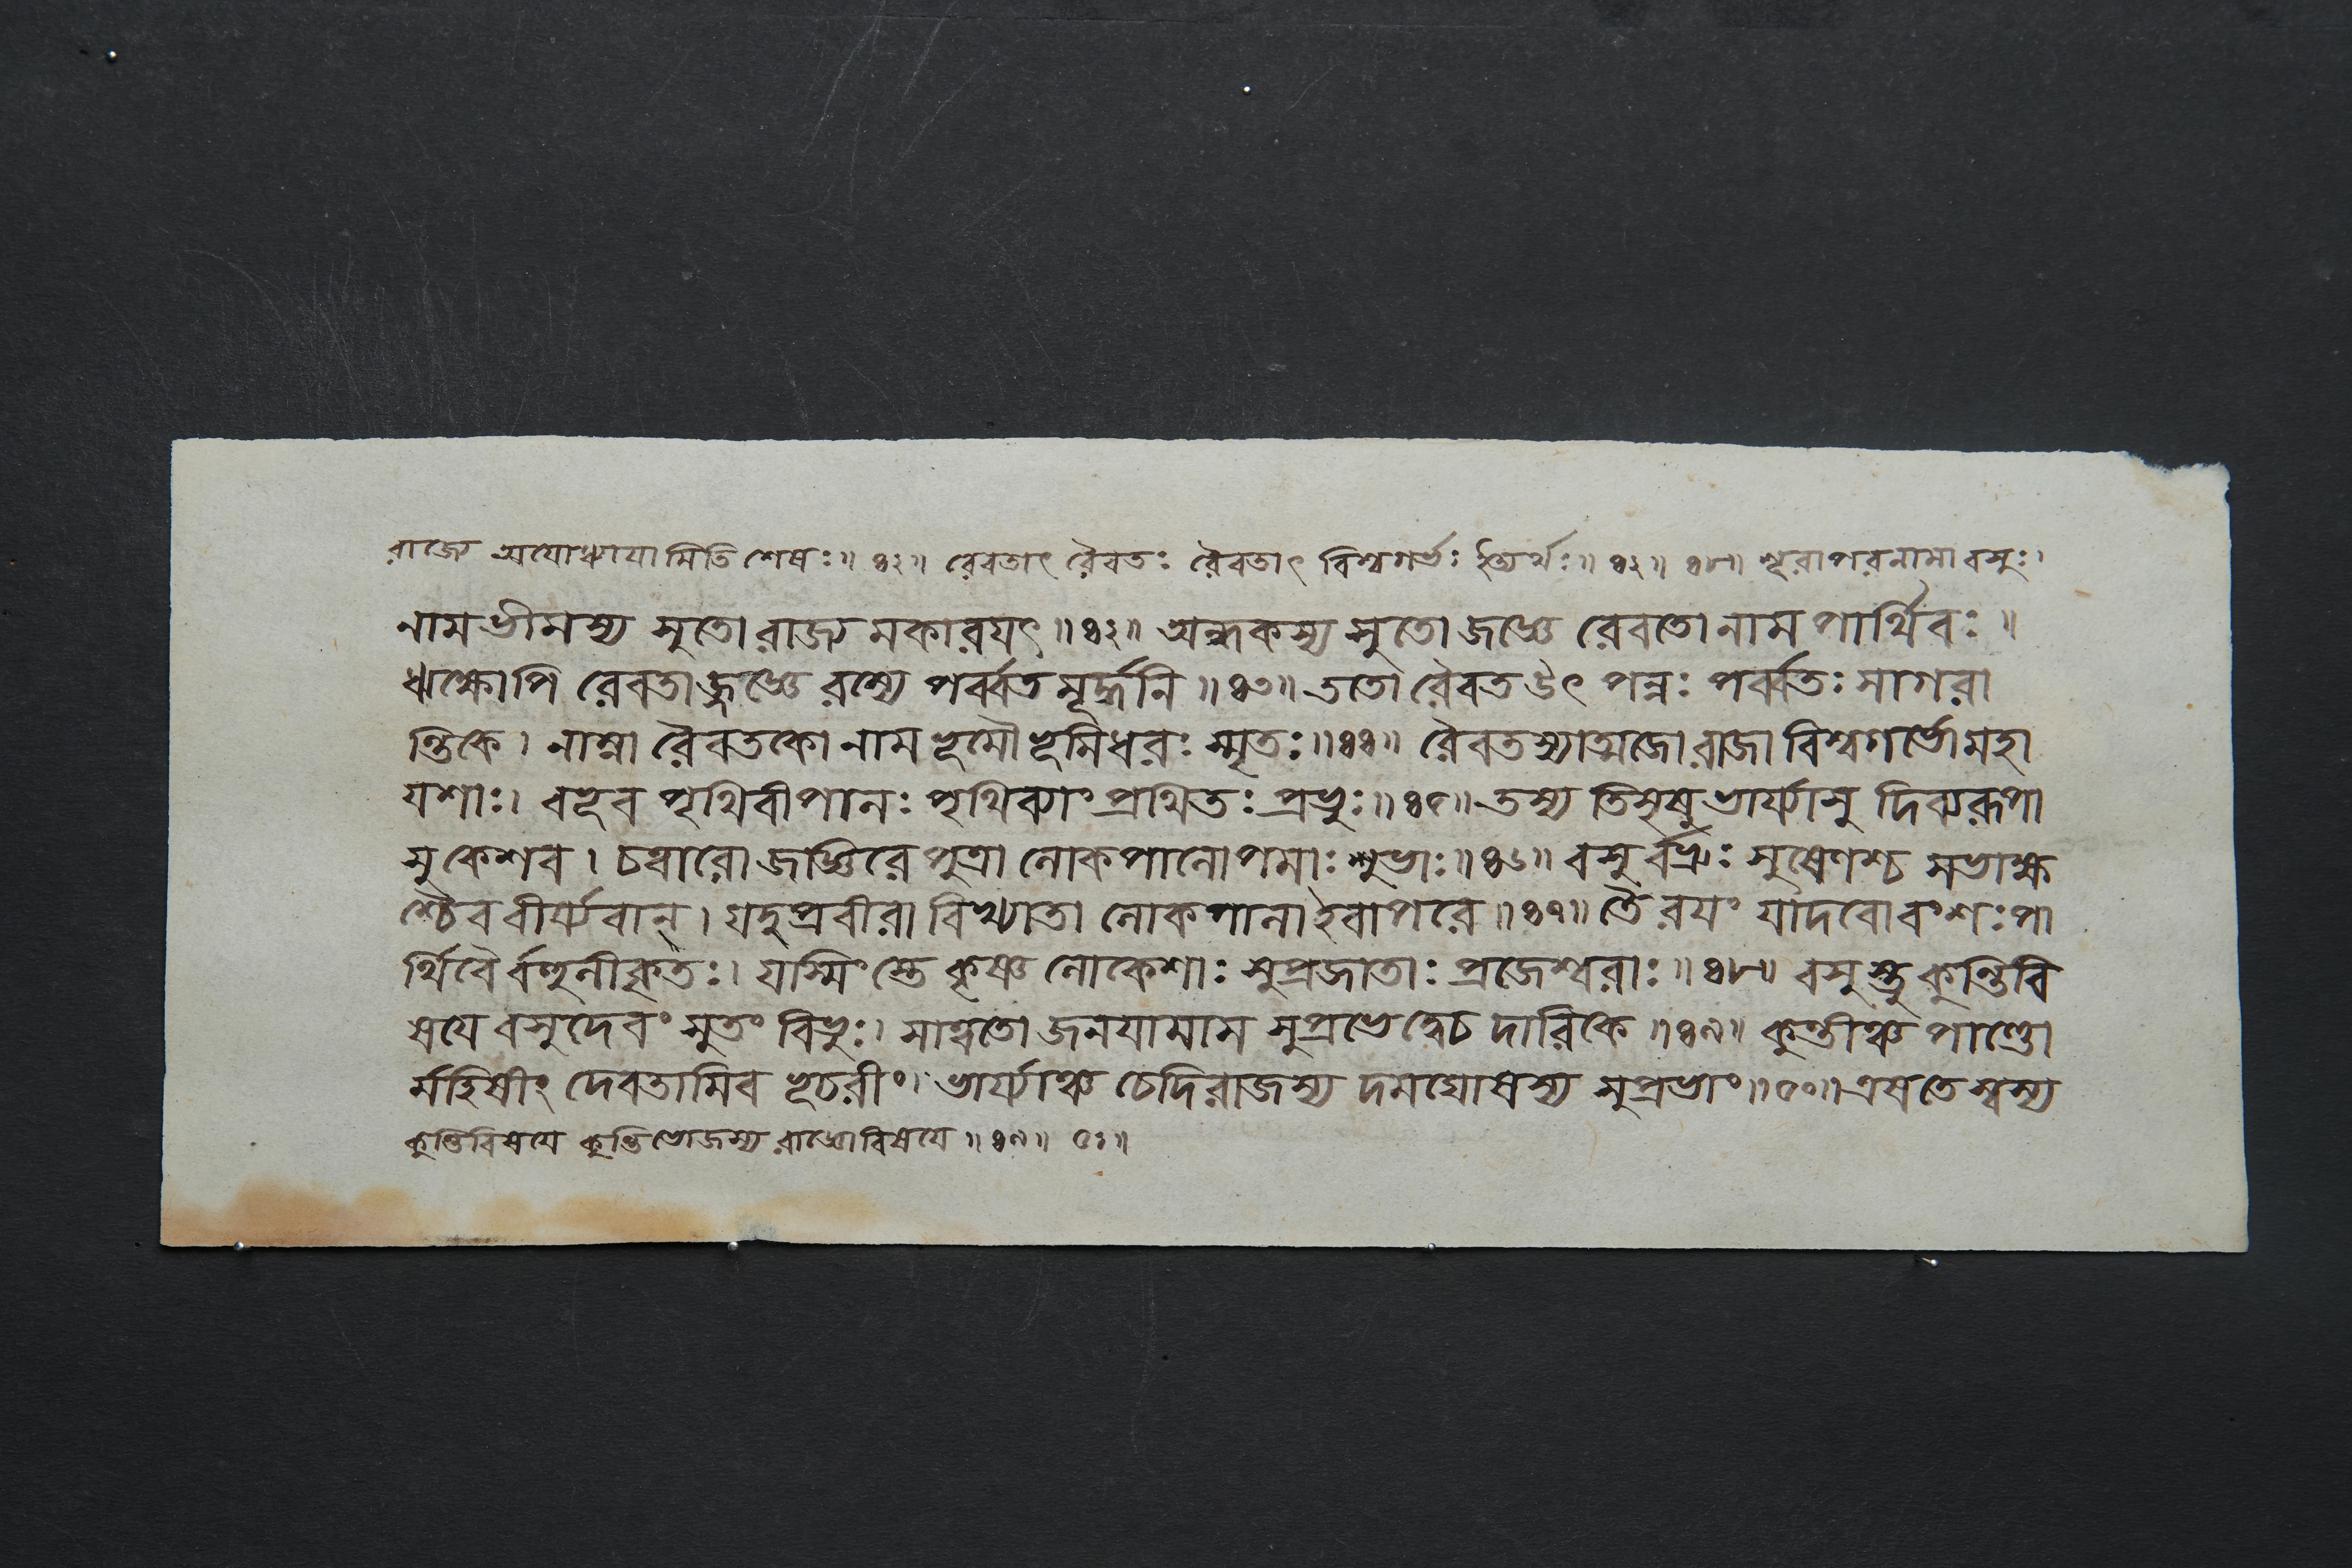 রাজ্যে অযোধ্যাযামিতি শেষঃ॥ ৪২॥ রেবতাৎ রৈবতঃ রৈবতাৎ বিশ্বগর্ভঃ ইত্যর্থঃ॥ ৪২॥ ৪৮॥ শূরাপরনামা বসুঃ।
নাম ভীমস্য সুতো রাজ্য মকারযৎ॥৪২॥ অন্ধকস্য সুতো জজ্ঞে রেবতো নাম পার্থিবঃ॥
ঋক্ষোপি রেবতাজ্জজ্ঞে রম্যে পর্ব্বত মূর্দ্ধনি॥৪৩॥ ততো রৈবত উৎ পন্নঃ পর্ব্বতঃ সাগরা
ন্তিকে। নাম্না রৈবতকো নাম ভূমৌ ভূমিধরঃ স্মৃতঃ॥৪৪॥ রৈবতস্যাত্মজো রাজা বিশ্বগর্ভো মহা
যশাঃ। বভূব পৃথিবীপালঃ পৃথিব্যাং প্রথিতঃ প্রভুঃ॥৪৫॥ তস্য তিসৃষু ভার্য্যাসু দিব্যরূপা
সু কেশব। চত্বারো জজ্ঞিরে পুত্রা লোকপালোপমাঃ শুভাঃ॥৪৬॥ বসু র্বভ্রুঃ সুষেণশ্চ সভাক্ষ
শ্চৈব বীর্য্যবান্। যদুপ্রবীরা বিখ্যাতা লোকপালা ইবাপরে॥৪৭॥ তৈ রযং যাদবো বংশঃ পা
র্থিবৈ র্বহুলীকৃতঃ। যস্মিং স্তে কৃষ্ণ লোকেশাঃ সুপ্রজাতাঃ প্রজেশ্বরাঃ॥৪৮॥ বসুস্তু কুন্তিবি
ষযে বসুদেবং সুতং বিভুঃ। সাত্বতো জনযামাস সুপ্রভে দ্বেচ দারিকে॥৪৯॥ কুন্তীঞ্চ পাণ্ডো
র্মহিষীং দেবতামিব ভূচরীং। ভার্য্যাঞ্চ চেদিরাজস্য দমঘোষস্য সুপ্রভাং॥৫০॥ এষতে স্বস্য
কুন্তিবিষযে কুন্তিভোজস্য রাজ্ঞো বিষযে॥৪৯॥ ৫০॥